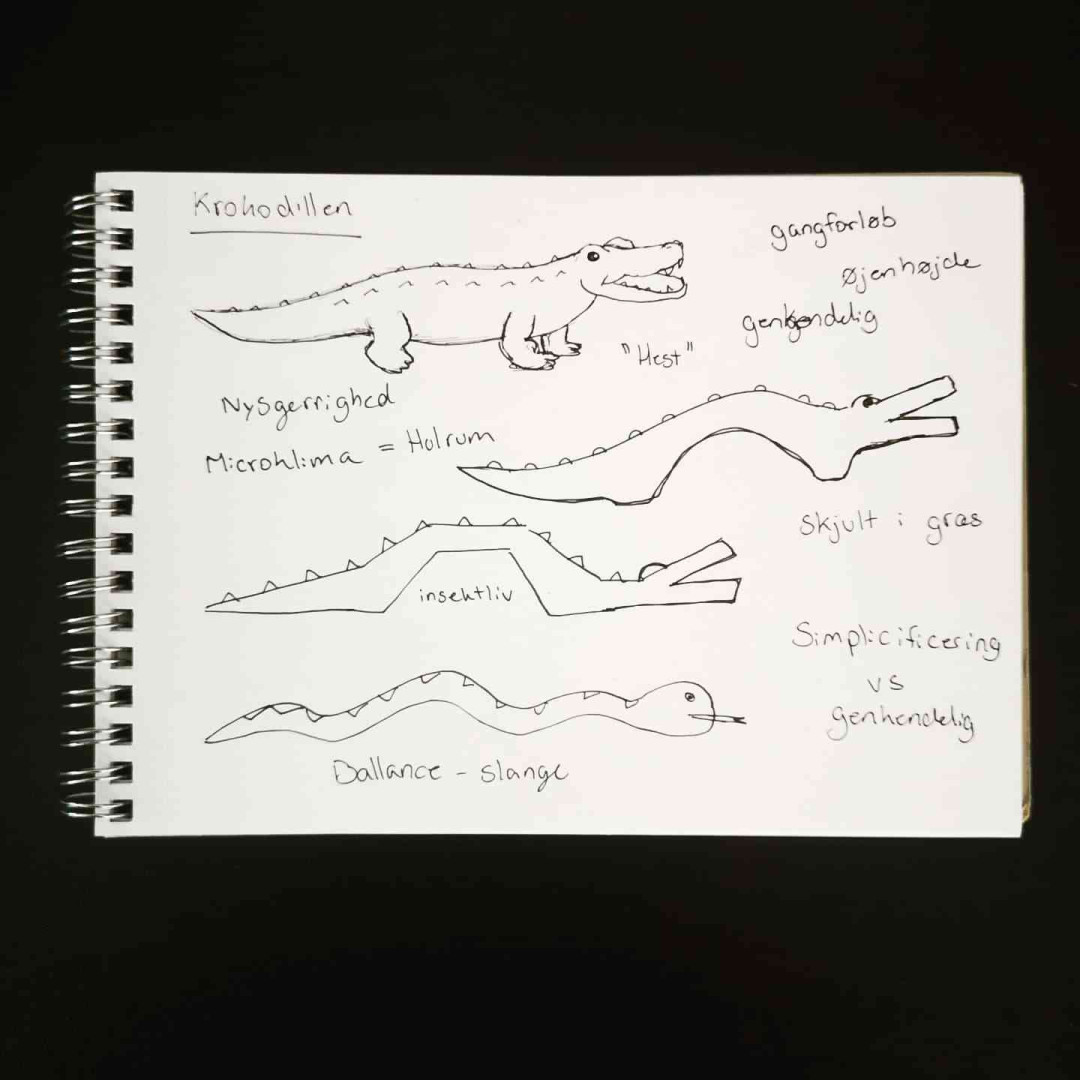 Krokodillen
gangforløb
øjenhøjde
genkendelig
"Hest"
Nysgerrighed
Microklima = Holrum
skjult i græs
insektliv
Simplicificering
vs
genkendelig
Ballance - slange